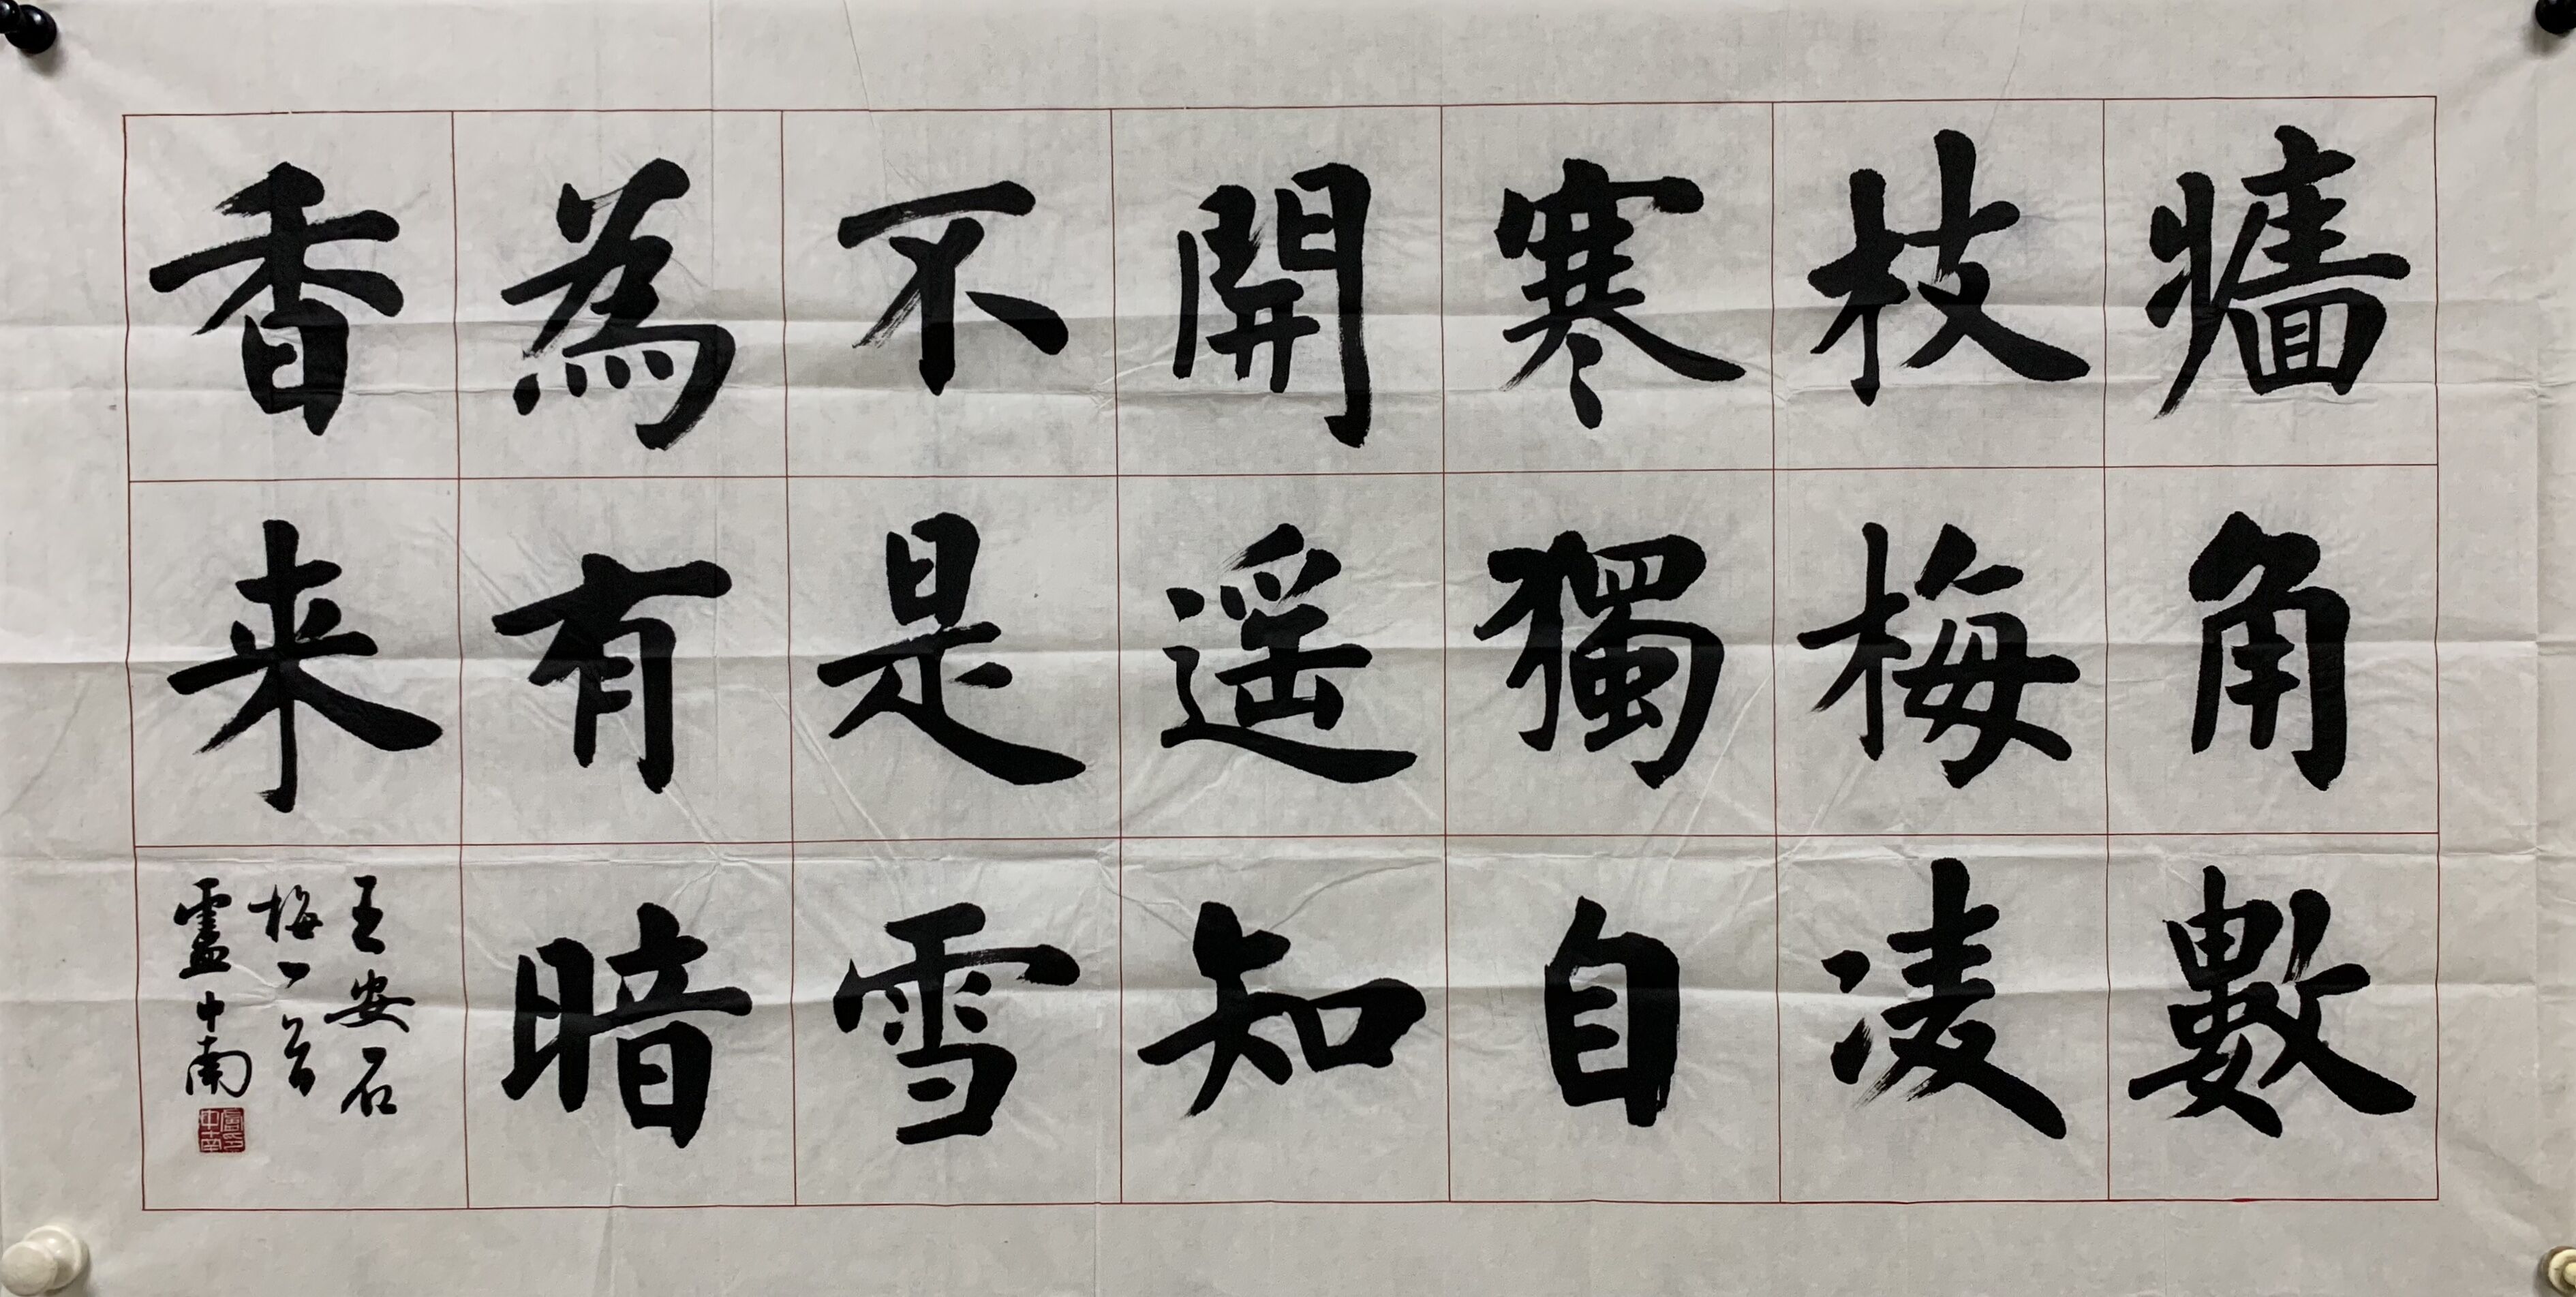 牆角數
枝梅凌
寒獨自
開遥知
不是雪
為有暗
香来
王安石
梅一首
盧中南
盧印中南